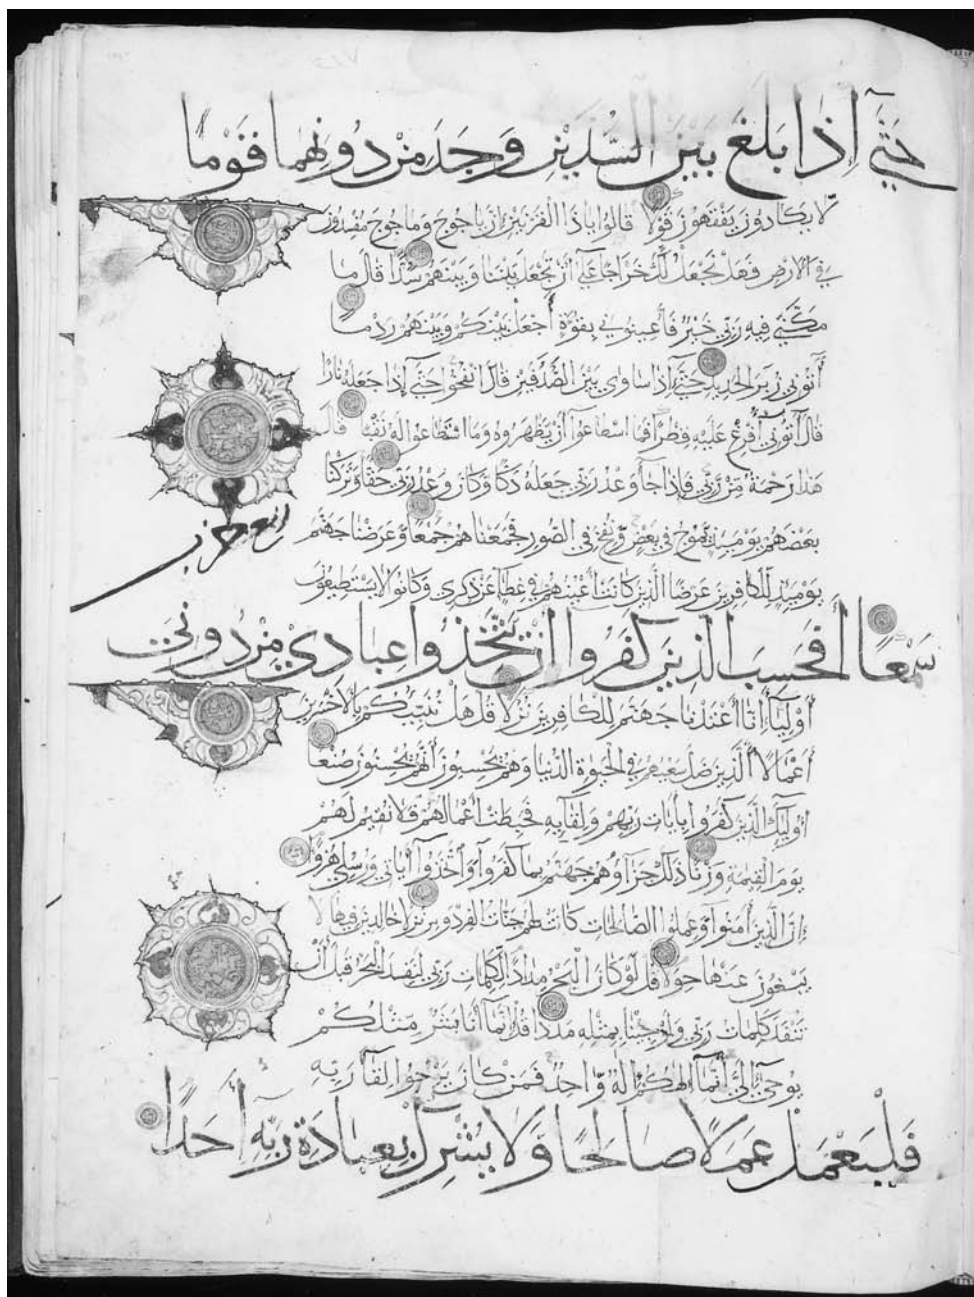 حَتَّىٰ إِذَا بَلَغَ بَيْنَ السَّدَّيْنِ وَجَدَ مِنْ دُونِهِمَا قَوْمًا
لَّا يَكَادُونَ يَفْقَهُونَ قَوْلًا قَالُوا يَاذَا الْقَرْنَيْنِ إِنَّ يَاجُوجَ وَمَاجُوجَ مُفْسِدُونَ
فِي الْأَرْضِ فَهَلْ نَجْعَلُ لَكَ خَرَاجًا عَلَىٰ أَنْ تَجْعَلَ بَيْنَنَا وَبَيْنَهُمْ سُدًّا قَالَ مَا
مَكَّنِّي فِيهِ رَبِّي خَيْرٌ فَأَعِينُونِي بِقُوَّةٍ أَجْعَلْ بَيْنَكُمْ وَبَيْنَهُمْ رَدْمًا
آتُونِي زُبَرَ الْحَدِيدِ حَتَّىٰ إِذَا سَاوَىٰ بَيْنَ الصَّدَفَيْنِ قَالَ انْفُخُوا حَتَّىٰ إِذَا جَعَلَهُ نَارًا
قَالَ آتُونِي أُفْرِغْ عَلَيْهِ قِطْرًا فَمَا اسْطَاعُوا أَنْ يَظْهَرُوهُ وَمَا اسْتَطَاعُوا لَهُ نَقْبًا قَالَ
هَذَا رَحْمَةٌ مِّنْ رَّبِّي فَإِذَا جَاءَ وَعْدُ رَبِّي جَعَلَهُ دَكًّا وَكَانَ وَعْدُ رَبِّي حَقًّا وَتَرَكْنَا
بَعْضَهُمْ يَوْمَئِذٍ يَمُوجُ فِي بَعْضٍ وَّنُفِخَ فِي الصُّورِ فَجَمَعْنَاهُمْ جَمْعًا وَّعَرَضْنَا جَهَنَّمَ
يَوْمَئِذٍ لِّلْكَافِرِينَ عَرْضًا الَّذِينَ كَانَتْ أَعْيُنُهُمْ فِي غِطَاءٍ عَنْ ذِكْرِي وَكَانُوا لَا يَسْتَطِيعُونَ
سَمْعًا أَفَحَسِبَ الَّذِينَ كَفَرُوا أَنْ يَتَّخِذُوا عِبَادِي مِنْ دُونِي
أَوْلِيَاءَ إِنَّا أَعْتَدْنَا جَهَنَّمَ لِلْكَافِرِينَ نُزُلًا قُلْ هَلْ نُنَبِّئُكُمْ بِالْأَخْسَرِينَ
أَعْمَالًا الَّذِينَ ضَلَّ سَعْيُهُمْ فِي الْحَيٰوةِ الدُّنْيَا وَهُمْ يَحْسَبُونَ أَنَّهُمْ يُحْسِنُونَ صُنْعًا
أُولَٰئِكَ الَّذِينَ كَفَرُوا بِآيَاتِ رَبِّهِمْ وَلِقَائِهِ فَحَبِطَتْ أَعْمَالُهُمْ فَلَا نُقِيمُ لَهُمْ
يَوْمَ الْقِيٰمَةِ وَزْنًا ذَلِكَ جَزَاؤُهُمْ جَهَنَّمُ بِمَا كَفَرُوا وَاتَّخَذُوا آيَاتِي وَرُسُلِي هُزُوًا
إِنَّ الَّذِينَ آمَنُوا وَعَمِلُوا الصَّالِحَاتِ كَانَتْ لَهُمْ جَنَّاتُ الْفِرْدَوْسِ نُزُلًا خَالِدِينَ فِيهَا لَا
يَبْغُونَ عَنْهَا حِوَلًا قُلْ لَّوْ كَانَ الْبَحْرُ مِدَادًا لِّكَلِمَاتِ رَبِّي لَنَفِدَ الْبَحْرُ قَبْلَ أَنْ
تَنْفَدَ كَلِمَاتُ رَبِّي وَلَوْ جِئْنَا بِمِثْلِهِ مَدَدًا قُلْ إِنَّمَا أَنَا بَشَرٌ مِّثْلُكُمْ
يُوحَىٰ إِلَيَّ أَنَّمَا إِلَٰهُكُمْ إِلَٰهٌ وَّاحِدٌ فَمَنْ كَانَ يَرْجُوا لِقَاءَ رَبِّهِ
فَلْيَعْمَلْ عَمَلًا صَالِحًا وَّلَا يُشْرِكْ بِعِبَادَةِ رَبِّهِ أَحَدًا